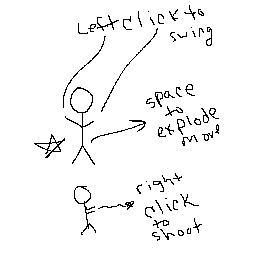 Left click to
swing
space
to
explode
move
right
click
to
shoot